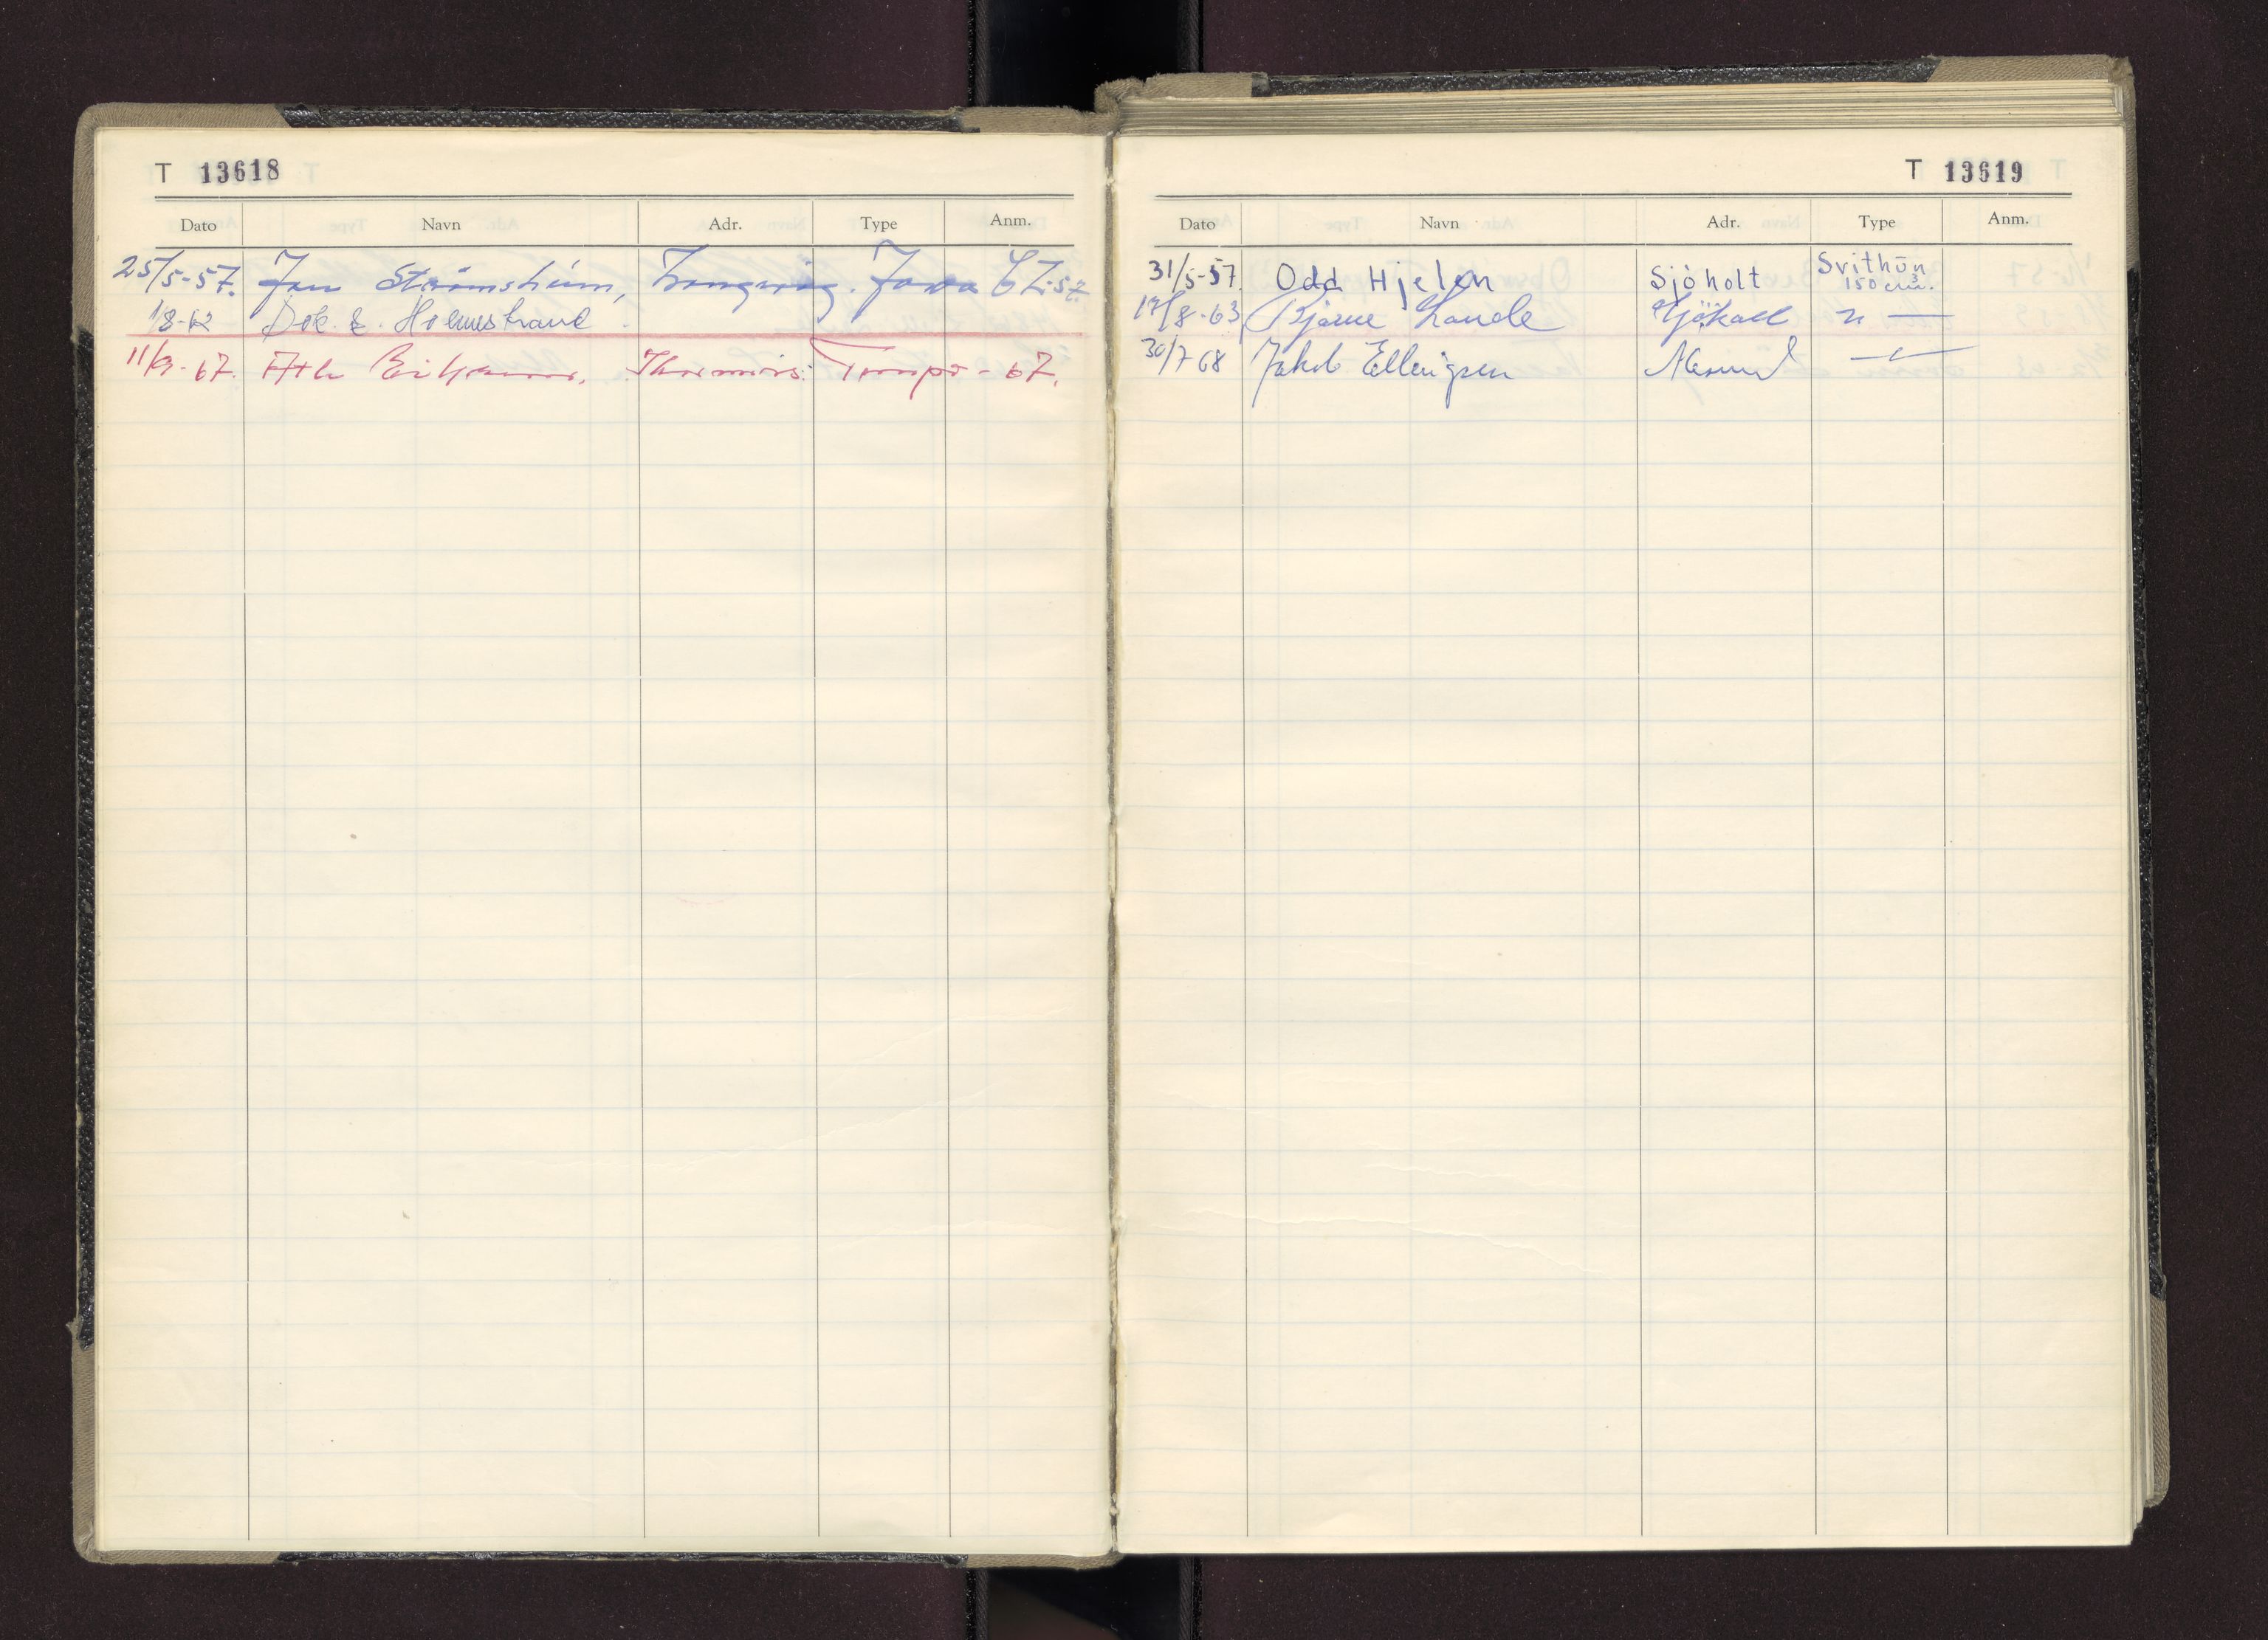 T 13618
Dato Navn Adr. Type Anm.
25/5-57. Jan Strømsheim, Jawa
1/8-62 Dok. s. Holmestrand
11/9-67. Tempo - 67.
T 13619
Dato Navn Adr. Type Anm.
31/5-57. Odd Hjelen Sjøholt Svithun
150 cm³.
17/8-63 Bjarne Lande " —
30/7 68 Jakob Ellingsen Ålesund —"—